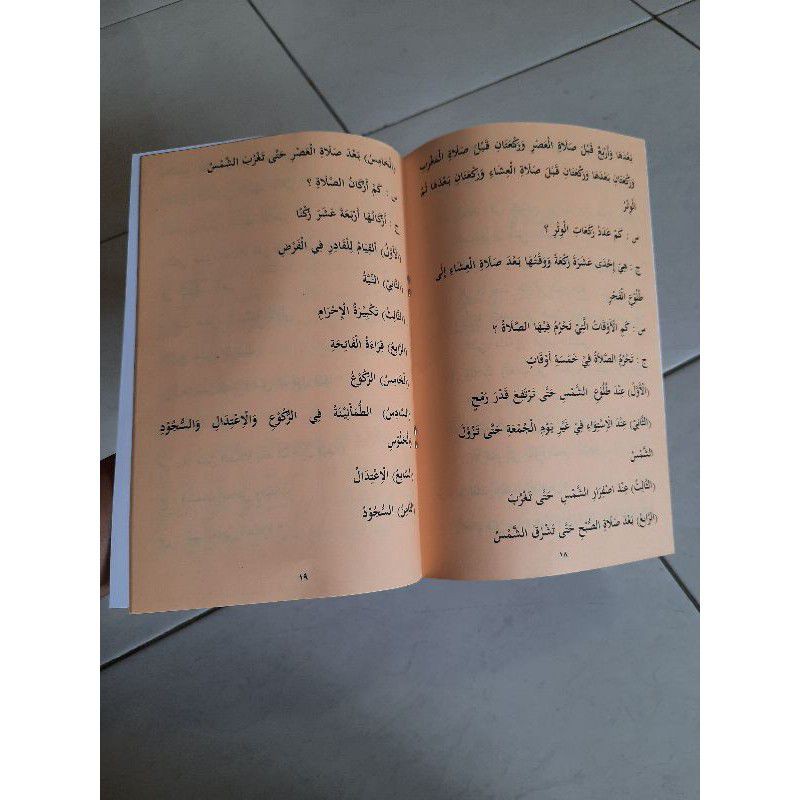 بَعْدَهَا وَأَرْبَعٌ قَبْلَ صَلَاةِ الْعَصْرِ وَرَكْعَتَانِ قَبْلَ صَلَاةِ الْمَغْرِبِ
وَرَكْعَتَانِ بَعْدَهَا وَرَكْعَتَانِ قَبْلَ صَلَاةِ الْعِشَاءِ وَرَكْعَتَانِ بَعْدَهَا ثُمَّ
الْوِتْرُ
س : كَمْ عَدَدُ رَكَعَاتِ الْوِتْرِ ؟
ج : هِيَ إِحْدَى عَشْرَةَ رَكْعَةً وَوَقْتُهَا بَعْدَ صَلَاةِ الْعِشَاءِ إِلَى
طُلُوْعِ الْفَجْرِ
س : كَمِ الْأَوْقَاتُ الَّتِيْ تَحْرُمُ فِيْهَا الصَّلَاةُ ؟
ج : تَحْرُمُ الصَّلَاةُ فِيْ خَمْسَةِ أَوْقَاتٍ
(الْأَوَّلُ) عِنْدَ طُلُوْعِ الشَّمْسِ حَتَّى تَرْتَفِعَ قَدْرَ رُمْحٍ
(الثَّانِيْ) عِنْدَ الْاِسْتِوَاءِ فِيْ غَيْرِ يَوْمِ الْجُمْعَةِ حَتَّى تَزُوْلَ
الشَّمْسُ
(الثَّالِثُ) عِنْدَ اصْفِرَارِ الشَّمْسِ حَتَّى تَغْرُبَ
(الرَّابِعُ) بَعْدَ صَلَاةِ الصُّبْحِ حَتَّى تَشْرُقَ الشَّمْسُ
١٨
(الْخَامِسُ) بَعْدَ صَلَاةِ الْعَصْرِ حَتَّى تَغْرُبَ الشَّمْسُ
س : كَمْ أَرْكَانُ الصَّلَاةِ ؟
ج : أَرْكَانُهَا أَرْبَعَةَ عَشَرَ رُكْنًا
(الْأَوَّلُ) اَلْقِيَامُ لِلْقَادِرِ فِي الْفَرْضِ
(الثَّانِيْ) النِّيَّةُ
(الثَّالِثُ) تَكْبِيْرَةُ الْإِحْرَامِ
(الرَّابِعُ) قِرَاءَةُ الْفَاتِحَةِ
(الْخَامِسُ) الرُّكُوْعُ
(السَّادِسُ) الطُّمَأْنِيْنَةُ فِي الرُّكُوْعِ وَالْاِعْتِدَالِ وَالسُّجُوْدِ
وَالْجُلُوْسِ
(السَّابِعُ) الْاِعْتِدَالُ
(الثَّامِنُ) السُّجُوْدُ
١٩